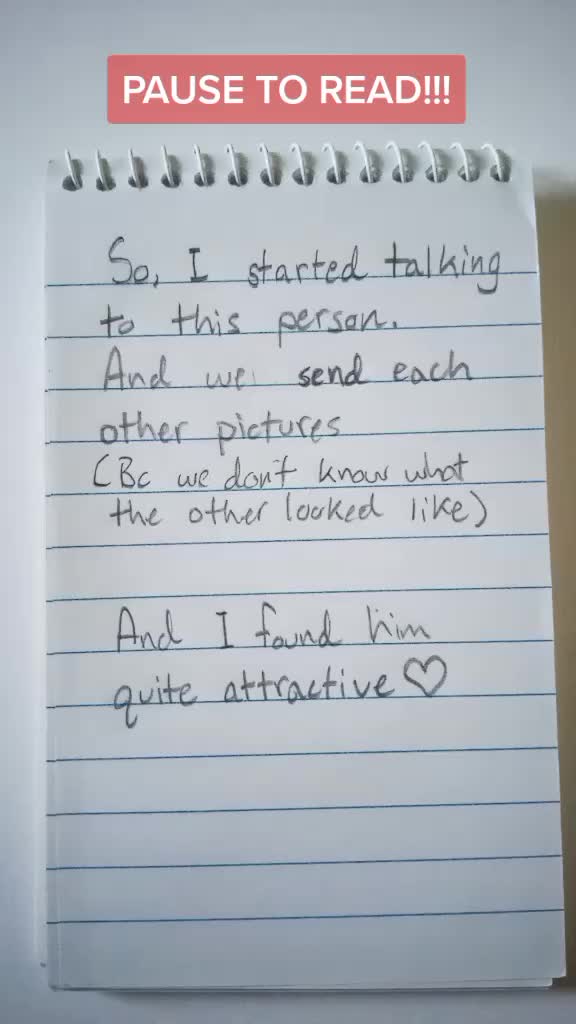 PAUSE TO READ!!!
So, I started talking
to this person.
And we send each
other pictures
(Bc we don't know what
the other looked like)
And I found him
quite attractive♡